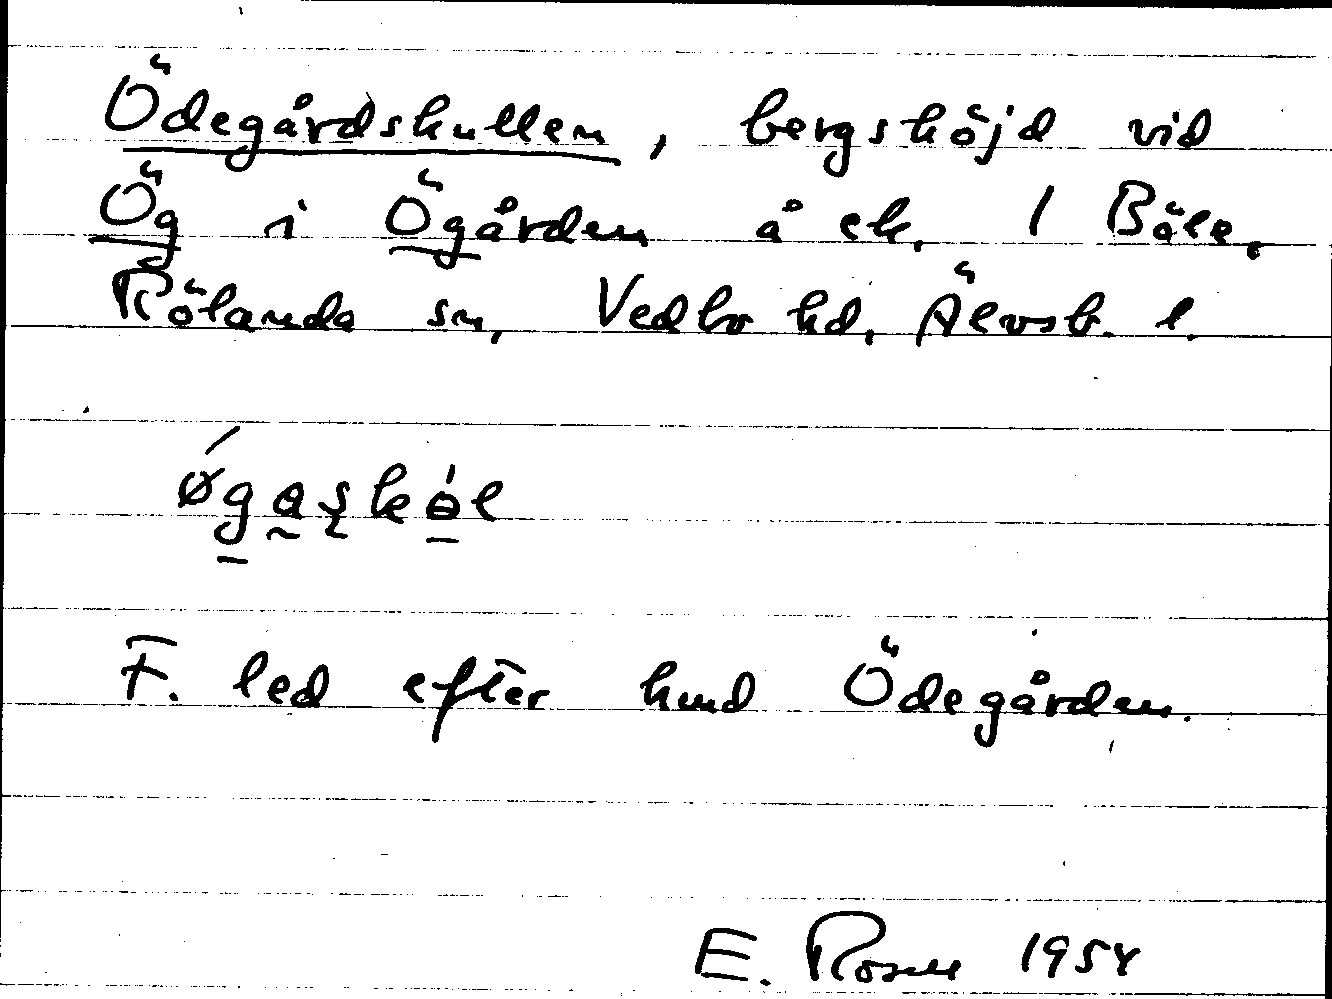 Ödegårdskullen, bergshöjd vid
Ög i Ögården å ek. 1 Böle,
Rölanda sn, Vedbo hd, Älvsb. l.
øgaskøl
F. led efter hmd Ödegården.
E. Rosell 1954